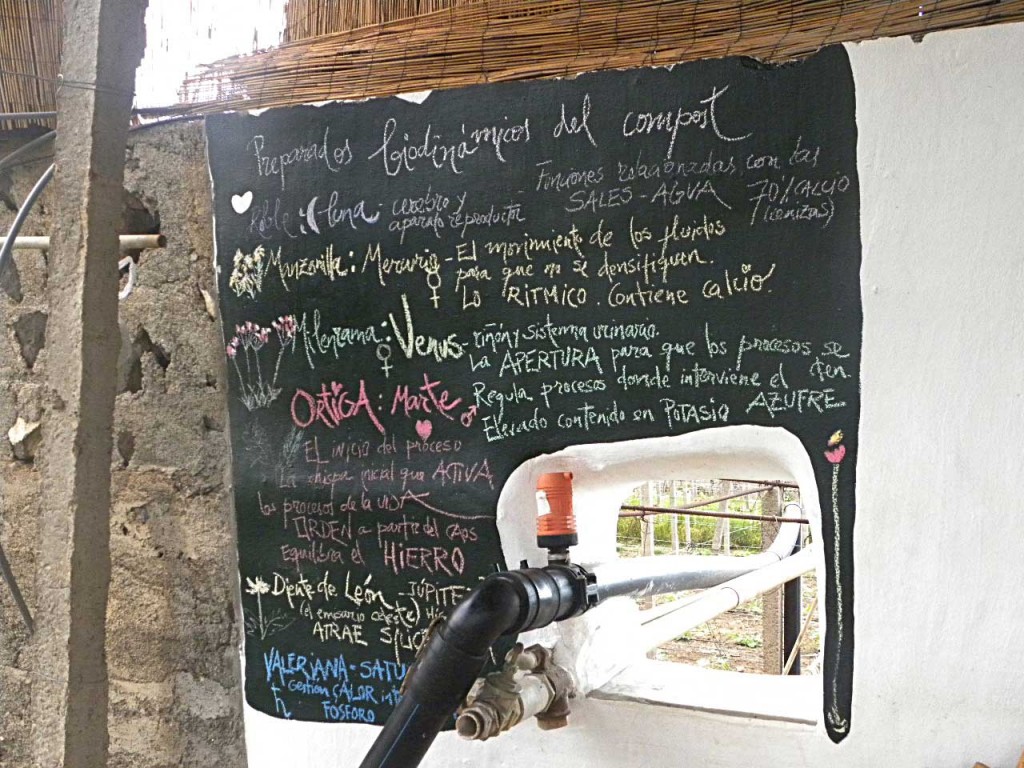 Preparados biodinámicos del compost
Roble: Luna - cerebro y aparato reproductor - Funciones relacionadas con las SALES - AGUA 70% CALCIO (cenizas)
Manzanilla: Mercurio - El movimiento de los fluidos
para que no se densifiquen.
Lo RITMICO. Contiene calcio.
Milenrama: Venus - riñón y sistema urinario.
La APERTURA para que los procesos se den
Regula procesos donde interviene el AZUFRE
Elevado contenido en POTASIO
ORTIGA: Marte ♂
EL inicio del proceso
La chispa inicial que ACTIVA
los procesos de la vida
ORDEN a partir del caos
Equilibra el HIERRO
Diente de León - JÚPITE
(el emisario celeste) Hí
ATRAE SÍLIC
VALERIANA - SATU
Gestión CALOR int
FÓSFORO